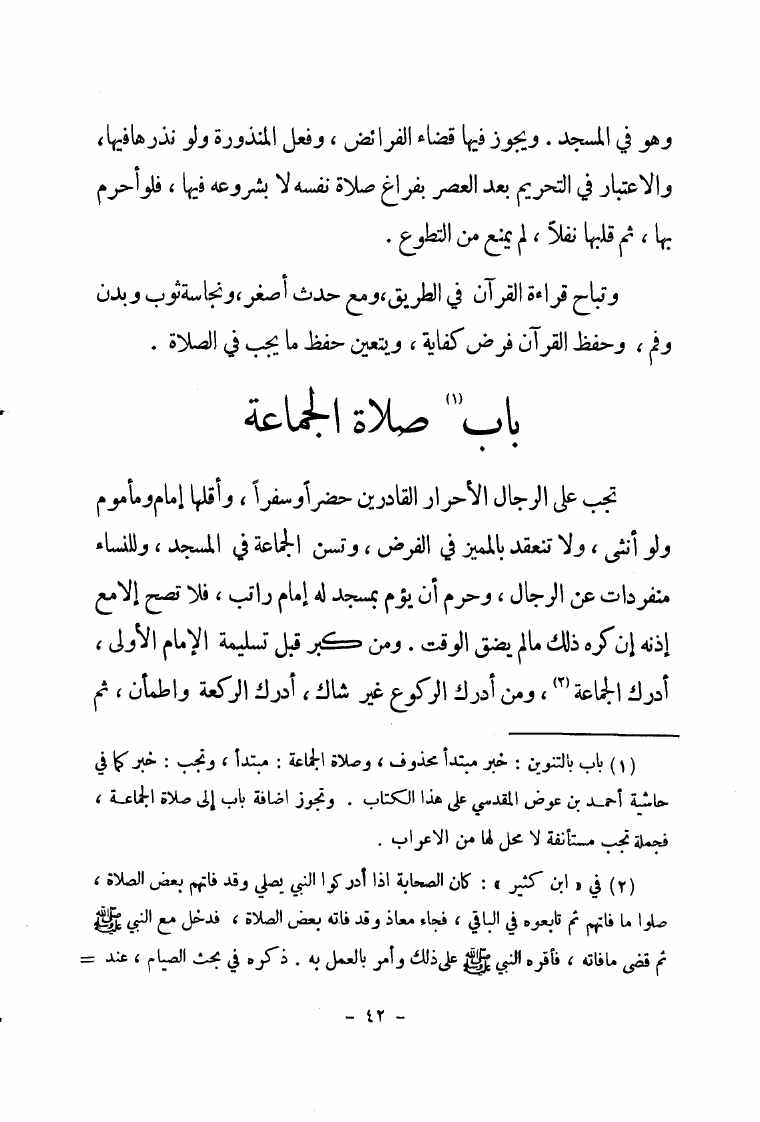 وهو في المسجد . ويجوز فيها قضاء الفرائض ، وفعل المنذورة ولو نذرها فيها ،
والاعتبار في التحريم بعد العصر بفراغ صلاة نفسه لا بشروعه فيها ، فلو أحرم
بها ، ثم قلبها نفلاً ، لم يمنع من التطوع .
وتباح قراءة القرآن في الطريق ، ومع حدث أصغر ، ونجاسة ثوب وبدن
وفم ، وحفظ القرآن فرض كفاية ، ويتعين حفظ ما يجب في الصلاة .
باب (١) صلاة الجماعة
تجب على الرجال الأحرار القادرين حضراً وسفراً ، وأقلها إمام ومأموم
ولو أنثى ، ولا تنعقد بالمميز في الفرض ، وتسن الجماعة في المسجد ، وللنساء
منفردات عن الرجال ، وحرم أن يؤم بمسجد له إمام راتب ، فلا تصح إلا مع
إذنه إن كره ذلك مالم يضق الوقت . ومن كبر قبل تسليمة الإمام الأولى ،
أدرك الجماعة (٢) ، ومن أدرك الركوع غير شاك ، أدرك الركعة واطمأن ، ثم
(١) باب بالتنوين : خبر مبتدأ محذوف ، وصلاة الجماعة : مبتدأ ، وتجب : خبر كما في
حاشية أحمد بن عوض المقدسي على هذا الكتاب . وتجوز اضافة باب إلى صلاة الجماعة ،
فجملة تجب مستأنفة لا محل لها من الاعراب .
(٢) في « ابن كثير » : كان الصحابة اذا أدركوا النبي يصلي وقد فاتهم بعض الصلاة ،
صلوا ما فاتهم ثم تابعوه في الباقي ، فجاء معاذ وقد فاته بعض الصلاة ، فدخل مع النبي ﷺ
ثم قضى مافاته ، فأقره النبي ﷺ على ذلك وأمر بالعمل به . ذكره في بحث الصيام ، عند =
- ٤٢ -